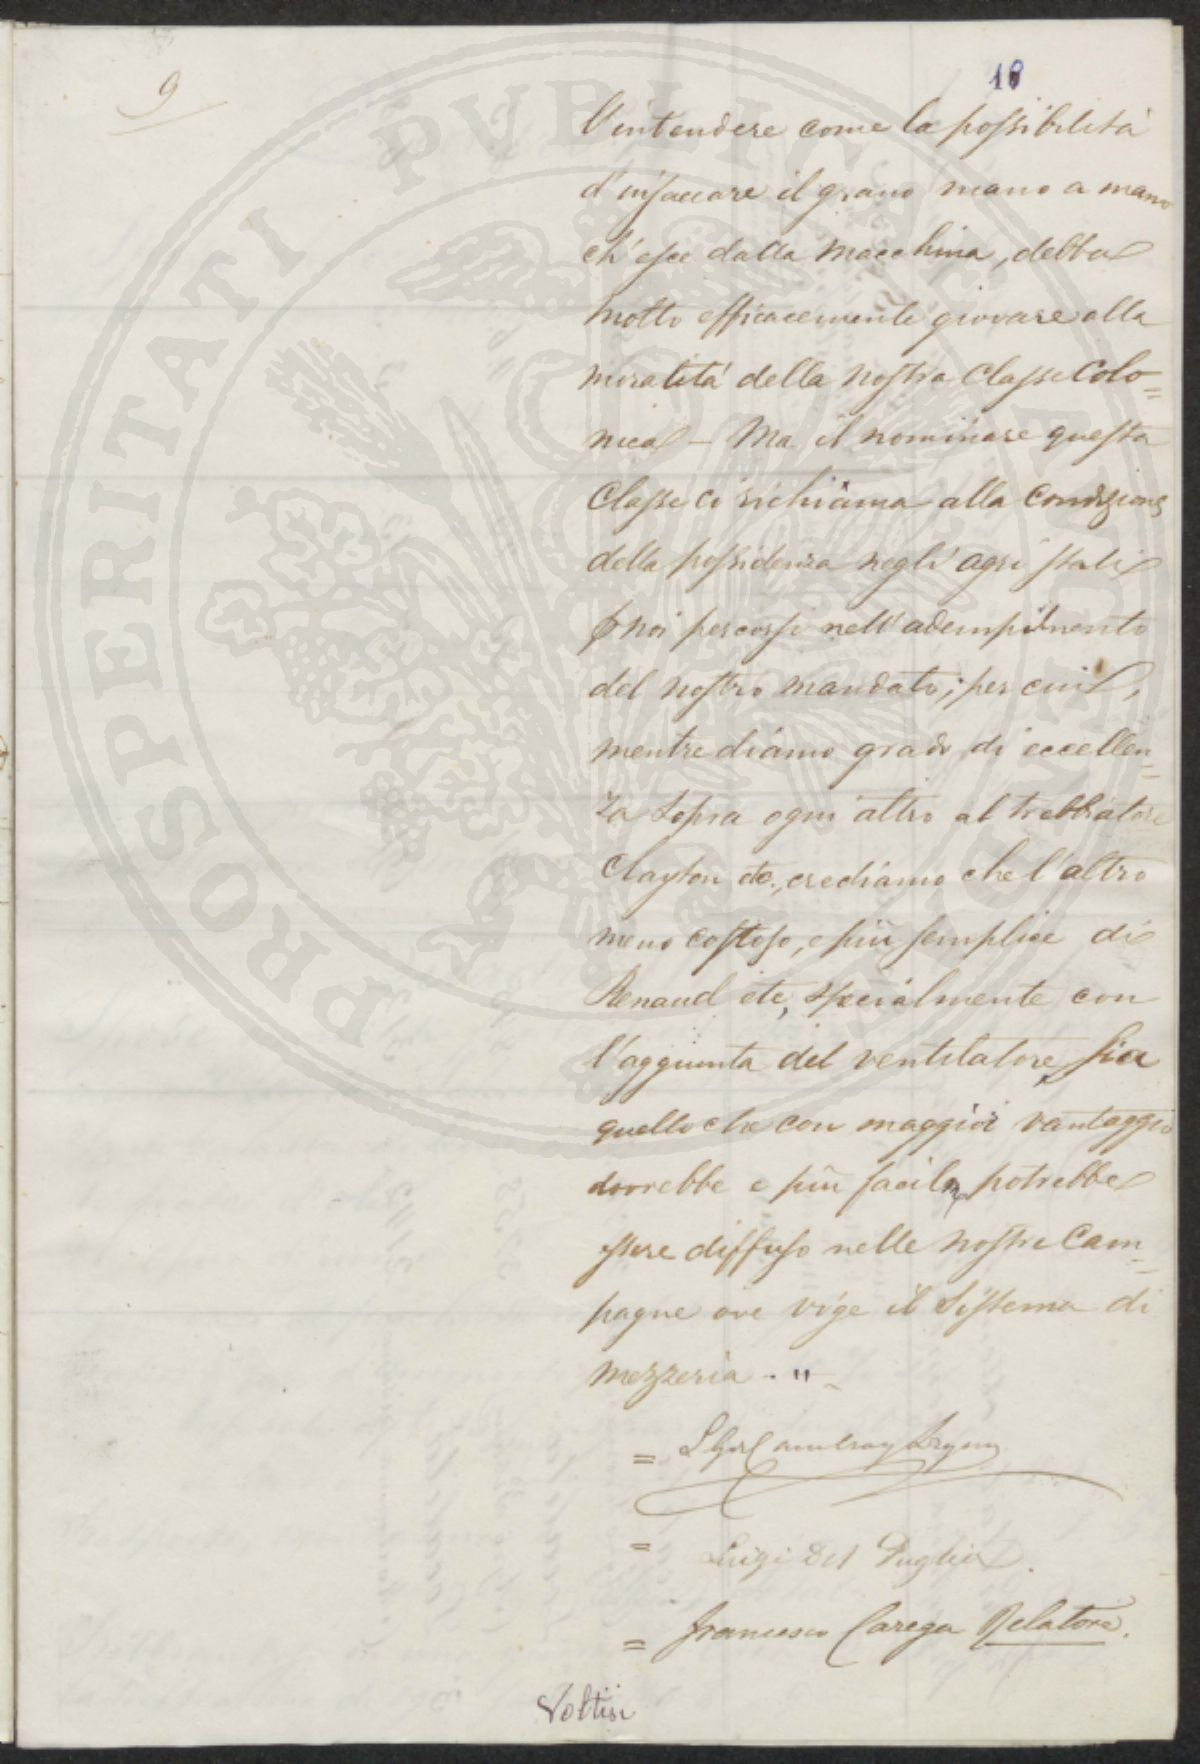 9
18
l'intendere come la possibilità
d'insaccare il grano mano a mano
ch'esce dalla macchina, debba
molto efficacemente giovare alla
moralità della nostra Classe Colo=
nica – Ma il nominare questa
Classe ci richiama alla Condizione
della possidenza negli agri stati
noi percorsi nell'adempimento
del nostro mandato; per cui,
mentre diamo grado di eccellen=
za sopra ogni altro al trebbiatore
Clayton etc., crediamo che l'altro
meno costoso, e più semplice di
Renaud etc, specialmente con
l'aggiunta del ventilatore, sia
quello che con maggior vantaggio
dovrebbe e più facilm potrebbe
essere diffuso nelle nostre Cam=
pagne ove vige il Sistema di
mezzeria. "
= Cambray Digny
= Luigi Del Puglia.
= Francesco Carega Relatore.
Voltisi
PROSPERITATI PUBLICAE